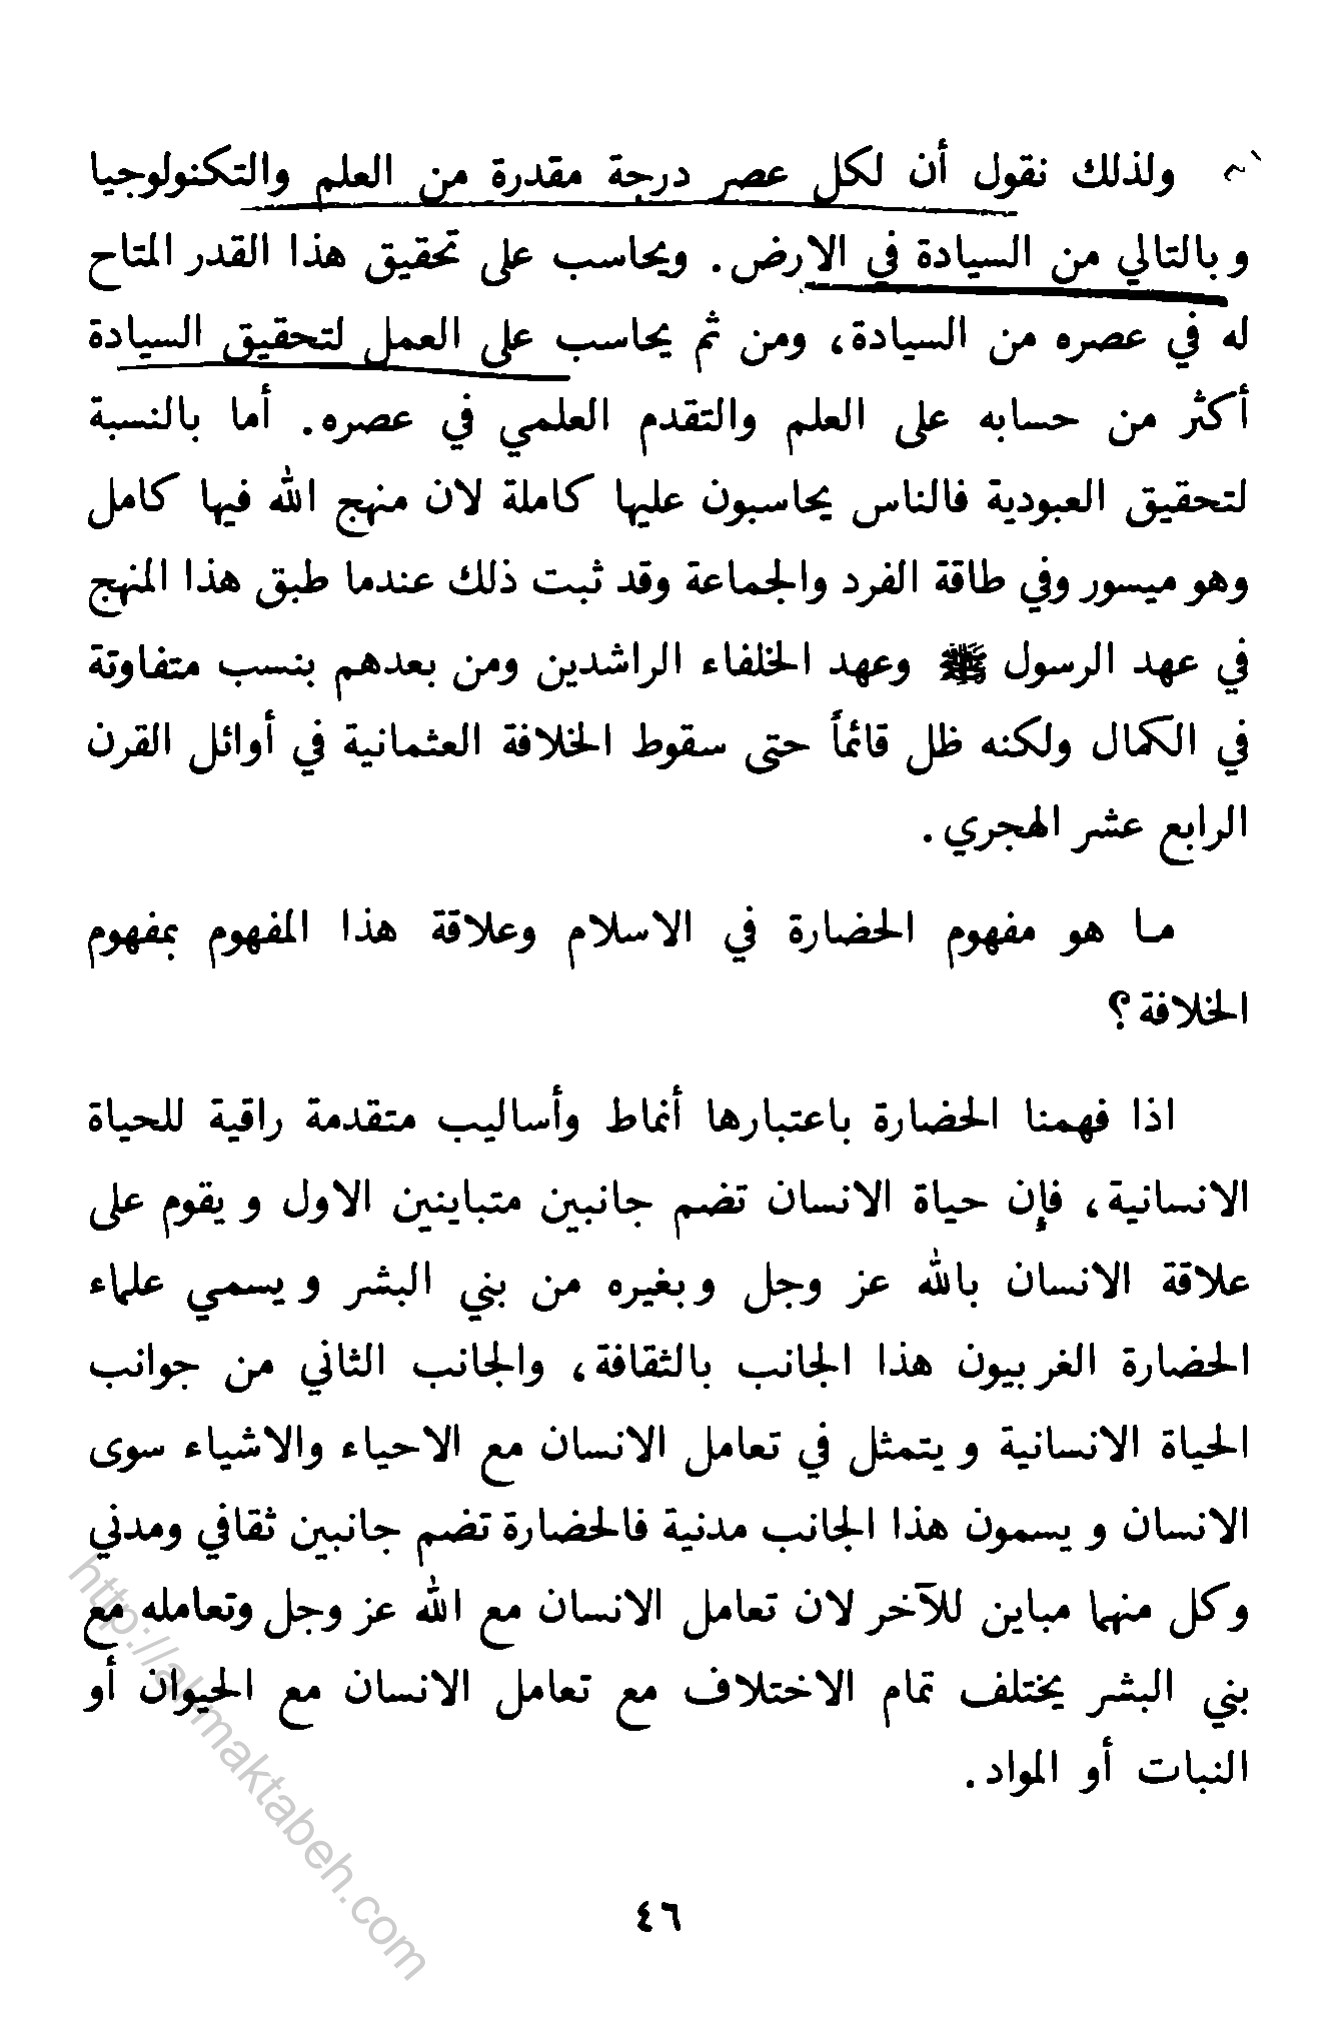 ولذلك نقول أن لكل عصر درجة مقدرة من العلم والتكنولوجيا
وبالتالي من السيادة في الارض. ويحاسب على تحقيق هذا القدر المتاح
له في عصره من السيادة، ومن ثم يحاسب على العمل لتحقيق السيادة
أكثر من حسابه على العلم والتقدم العلمي في عصره. أما بالنسبة
لتحقيق العبودية فالناس يحاسبون عليها كاملة لان منهج الله فيها كامل
وهو ميسور وفي طاقة الفرد والجماعة وقد ثبت ذلك عندما طبق هذا المنهج
في عهد الرسول ﷺ وعهد الخلفاء الراشدين ومن بعدهم بنسب متفاوتة
في الكمال ولكنه ظل قائماً حتى سقوط الخلافة العثمانية في أوائل القرن
الرابع عشر الهجري.
ما هو مفهوم الحضارة في الاسلام وعلاقة هذا المفهوم بمفهوم
الخلافة؟
اذا فهمنا الحضارة باعتبارها أنماط وأساليب متقدمة راقية للحياة
الانسانية، فإن حياة الانسان تضم جانبين متباينين الاول ويقوم على
علاقة الانسان بالله عز وجل وبغيره من بني البشر ويسمي علماء
الحضارة الغربيون هذا الجانب بالثقافة، والجانب الثاني من جوانب
الحياة الانسانية ويتمثل في تعامل الانسان مع الاحياء والاشياء سوى
الانسان ويسمون هذا الجانب مدنية فالحضارة تضم جانبين ثقافي ومدني
وكل منهما مباين للآخر لان تعامل الانسان مع الله عز وجل وتعامله مع
بني البشر يختلف تمام الاختلاف مع تعامل الانسان مع الحيوان أو
النبات أو المواد.
٤٦
http://al-maktabeh.com